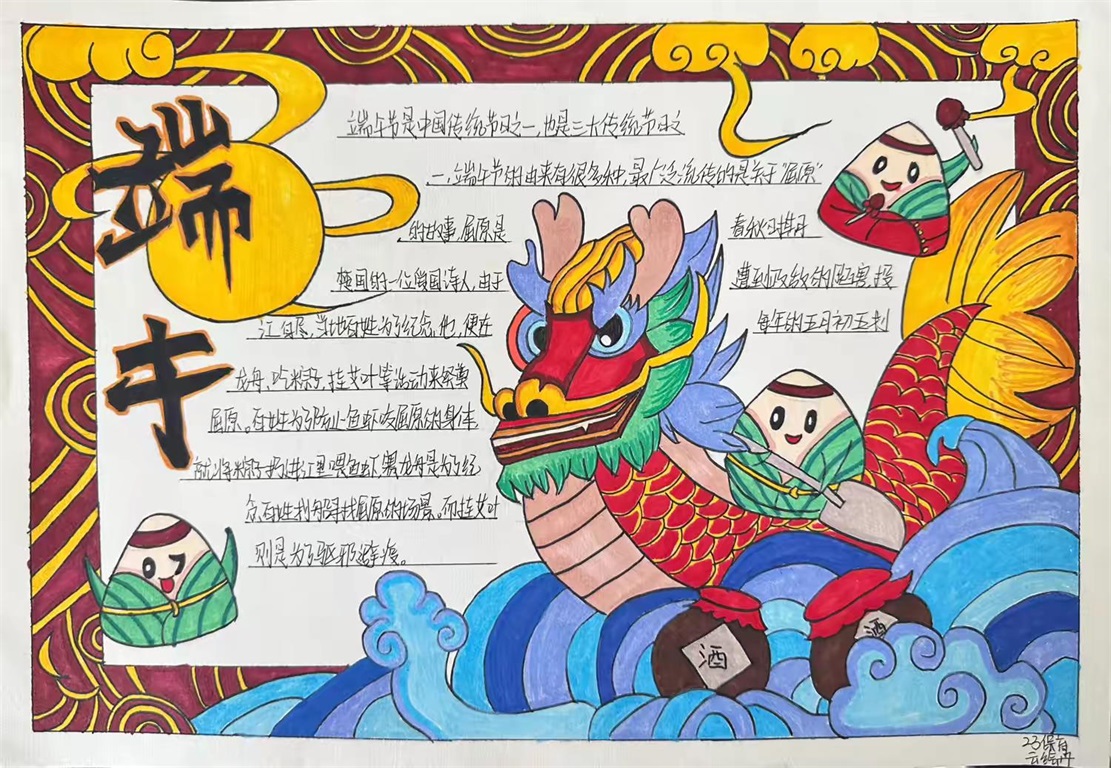 端午
端午节是中国传统节日之一,也是三大传统节日之
一,端午节的由来有很多种,最广泛流传的是关于"屈原"
的故事,屈原是
春秋时期
楚国的一位爱国诗人,由于
遭到政敌的陷害,投
江自尽,当地百姓为了纪念他,便在
每年的五月初五划
龙舟,吃粽子,挂艾叶等活动来祭奠
屈原。百姓为了防止鱼虾咬屈原的身体
就将粽子投进江里喂鱼虾,赛龙舟是为了纪
念百姓划舟寻找屈原的场景。而挂艾叶
则是为了驱邪避疫。
酒
酒
23保育